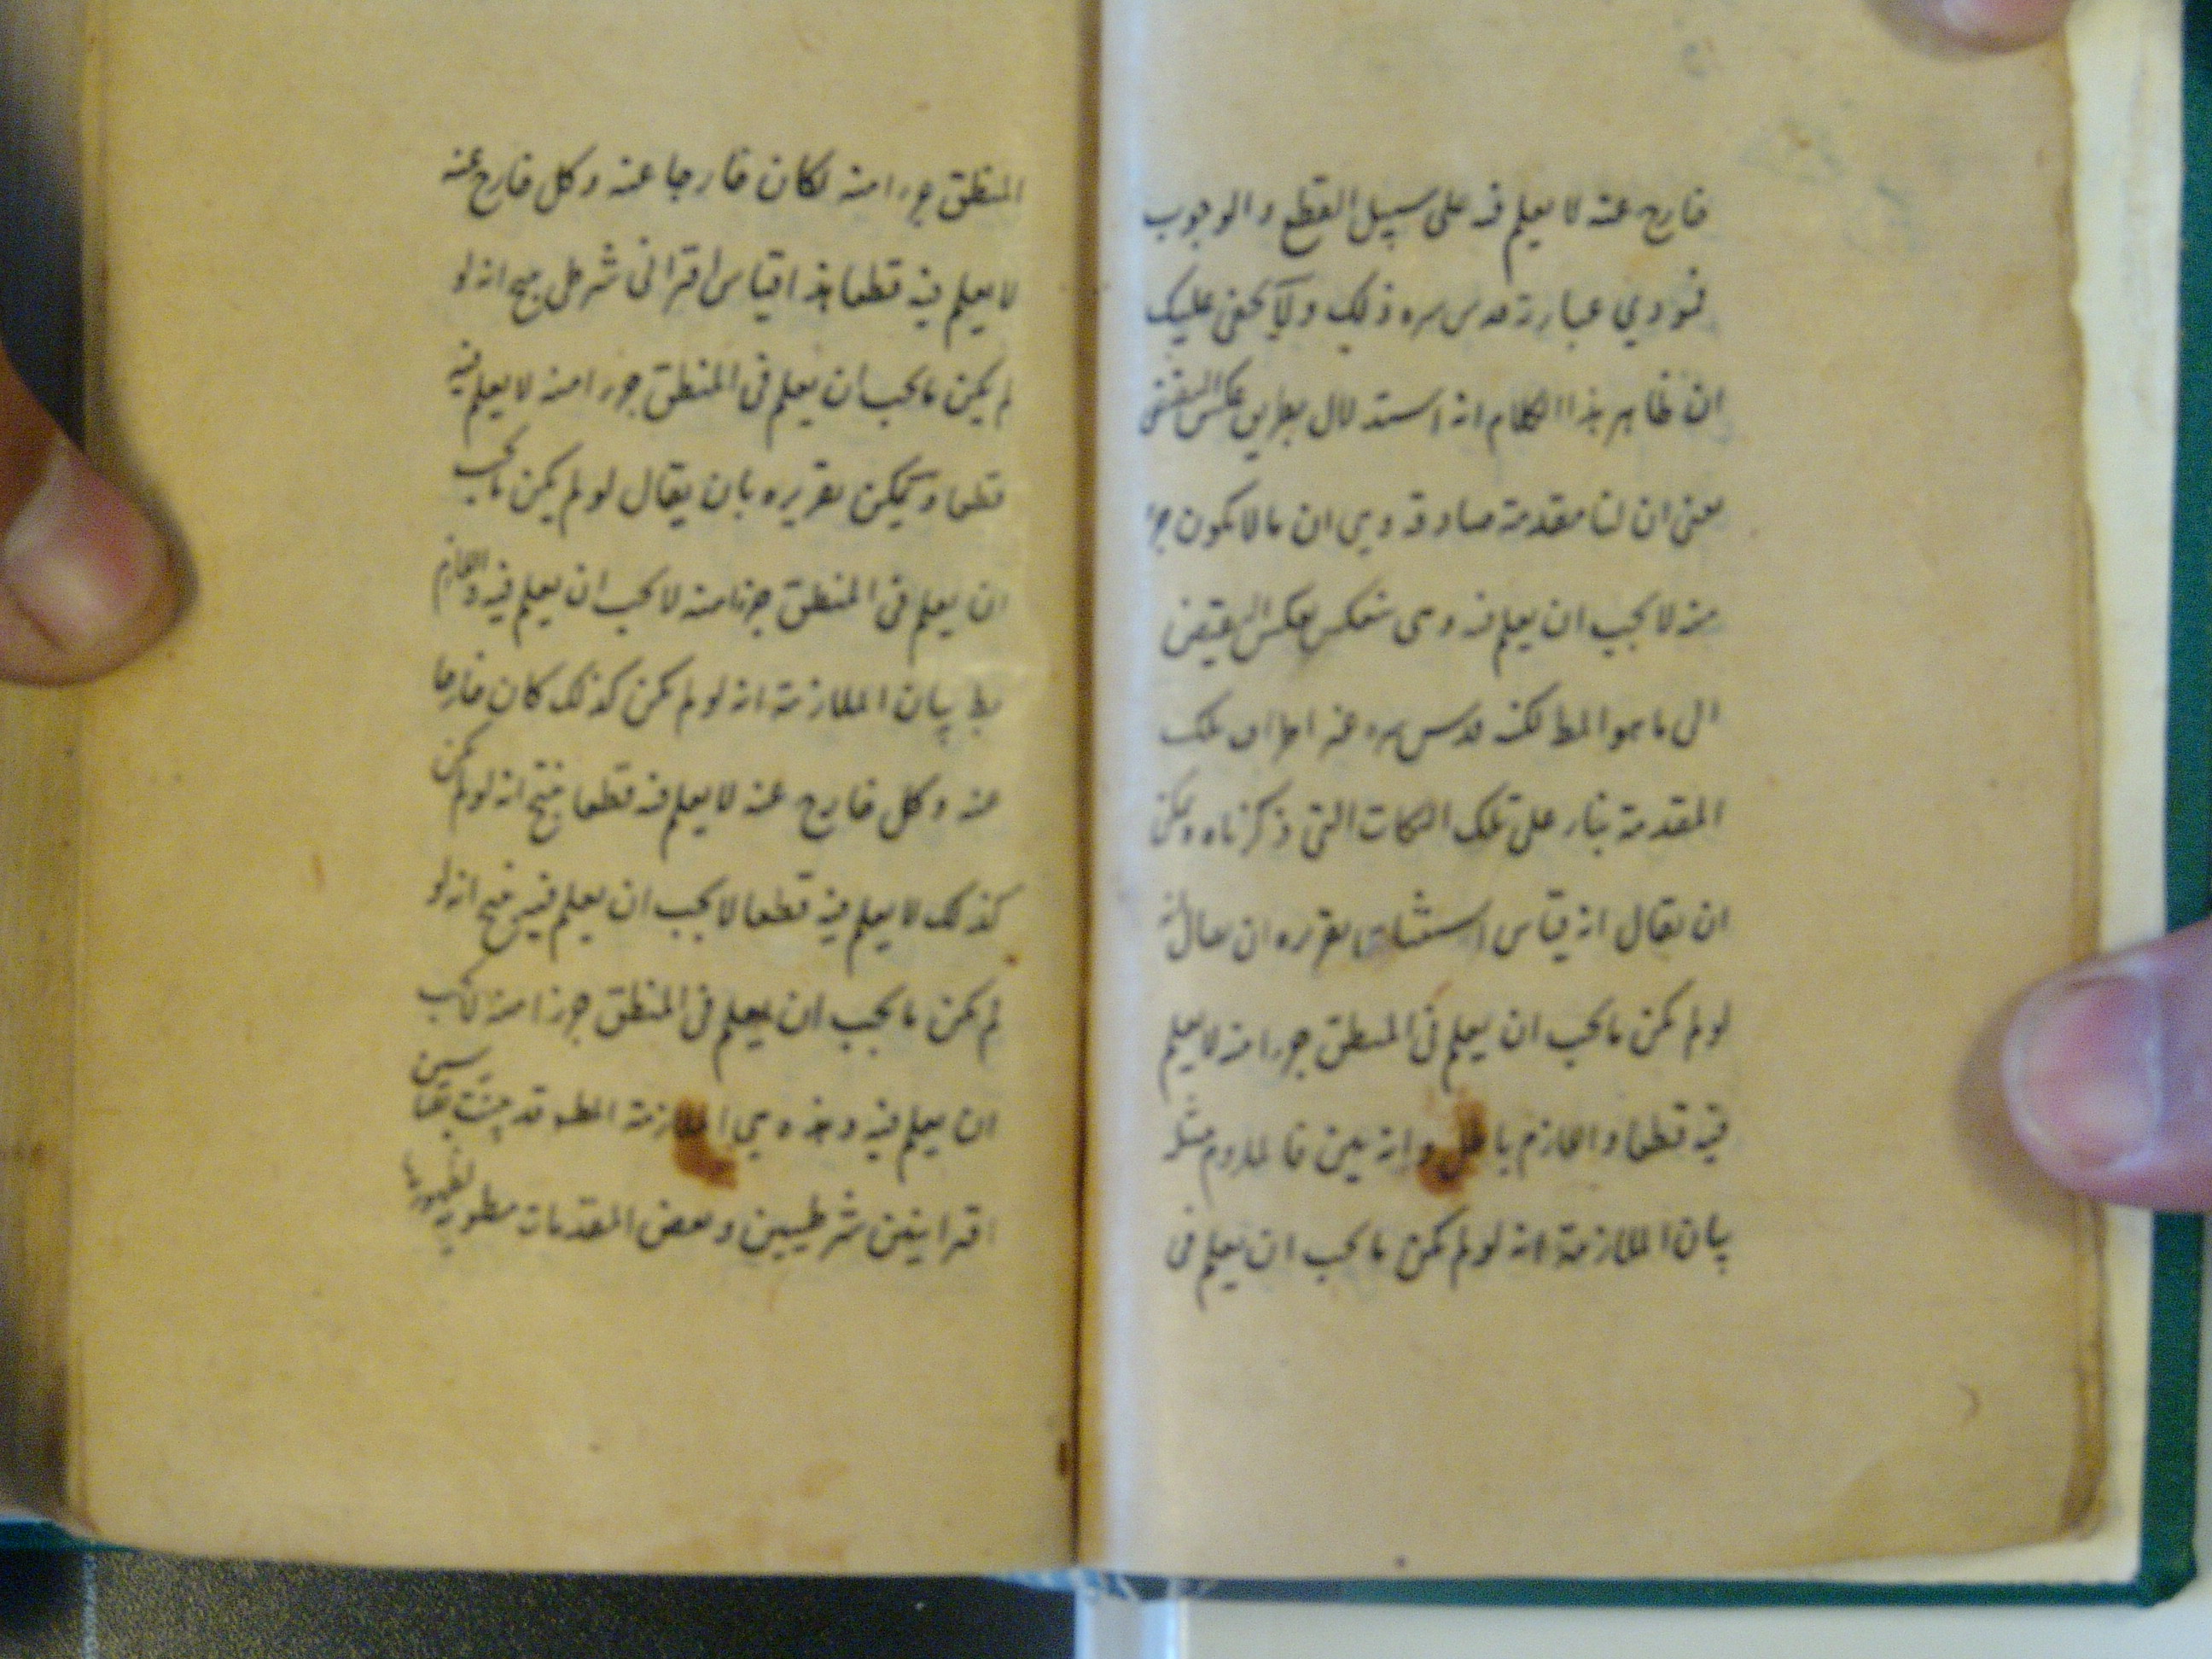 خارج عنه لا يعلم فيه على سبيل القطع والوجوب
عبارة قدس سره ذلك ولا يخفى عليك
ان ظاهر هذا الكلام انه استدلال بطريق عكس النقيض
معنى ان لنا مقدمة صادقة وهي ان ما لا يكون جزء
منه لا يجب ان يعلم فيه وهي تنعكس بعكس النقيض
الى ما هو المط لكنه قدس سره تلك
المقدمة بناء على تلك النكات التي ذكرناه ويمكن
ان يقال انه قياس استثنائي تقريره ان يقال انه
لو لم يكن ما يجب ان يعلم في المنطق جزءا منه لا يعلم
فيه قطعا واللازم باطل وانه بين فالملزوم مثله
بيان الملازمة انه لو لم يكن ما يجب ان يعلم في
المنطق جزءا منه لكان خارجا عنه وكل خارج عنه
لا يعلم فيه قطعا هذا قياس اقتراني شرطي ينتج انه لو
لم يكن ما يجب ان يعلم في المنطق جزءا منه لا يعلم فيه
قطعا ويمكن تقريره بان يقال لو لم يكن ما يجب
ان يعلم في المنطق جزءا منه لا يجب ان يعلم فيه واللازم
بط بيان الملازمة انه لو لم يكن كذلك كان خارجا
عنه وكل خارج عنه لا يعلم فيه قطعا فينتج انه لو لم يكن
كذلك لا يعلم فيه قطعا لا يجب ان يعلم فيه فينتج انه لو
لم يكن ما يجب ان يعلم في المنطق جزءا منه لا يجب
ان يعلم فيه وهذه هي الملازمة المط وقد بينت بقياسين
اقترانيين شرطيين وبعض المقدمات مطوية لظهورها